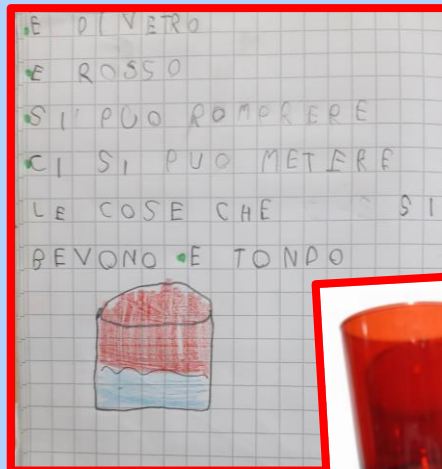 .E DI VETRO
•E ROSSO
•SI' PUO ROMPRERE
•CI SI PUO METERE
LE COSE CHE SI
BEVONO •E TONDO